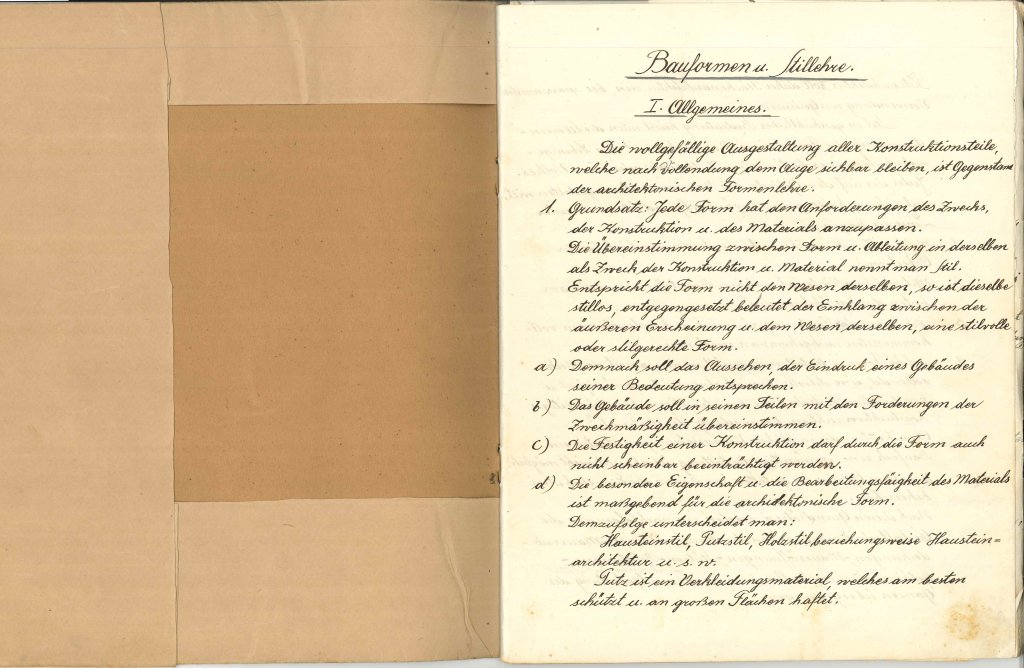 Bauformen u. Stillehre.
I. Allgemeines.
Die wollgefällige Ausgestaltung aller Konstruktionsteile,
welche nach Vollendung dem Auge sichbar bleiben, ist Gegenstand
der architektonischen Formenlehre.
1. Grundsatz: Jede Form hat den Anforderungen des Zwecks,
der Konstruktion u. des Materials anzupassen.
Die Übereinstimmung zwischen Form u. Ableitung in derselben
als Zweck der Konstruktion u. Material nennt man Stil.
Entspricht die Form nicht den Wesen derselben, so ist dieselbe
stillos, entgegengesetzt beleutet der Einklang zwischen der
äußeren Erscheinung u. dem Wesen derselben, eine stilvolle
oder stilgerechte Form.
a) Demnach soll das Aussehen, der Eindruck eines Gebäudes
seiner Bedeutung entsprechen.
b) Das Gebäude soll in seinen Teilen mit den Forderungen der
Zweckmäßigkeit übereinstimmen.
c) Die Festigkeit einer Konstruktion darf durch die Form auch
nicht scheinbar beeinträchtigt werden.
d) Die besondere Eigenschaft u. die Bearbeitungsfäigheit des Materials
ist maßgebend für die architektonische Form.
Demzufolge unterscheidet man:
Hausteinstil, Putzstil, Holzstil beziehungsweise Haustein=
architektur u. s. w.
Putz ist ein Verkleidungsmaterial, welches am besten
schützt u. an großen Flächen haftet.